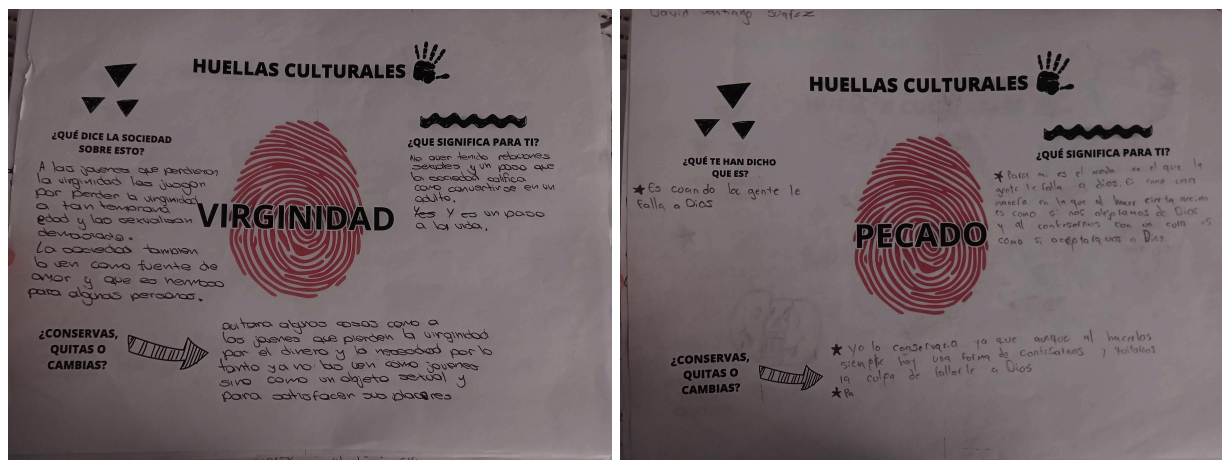 HUELLAS CULTURALES
¿QUÉ DICE LA SOCIEDAD
SOBRE ESTO?
A las jovenes que perdieron
la virginidad las juzgan
por perder la virginidad
a tan temprana
edad y las sexualisan
demaciado.
La sociedad tambien
lo ven como fuente de
amor y que es hermoso
para algunas personas.
VIRGINIDAD
¿QUE SIGNIFICA PARA TI?
No aver tenido relaciones
sexuales y un paso que
la sociedad califica
como convertirse en un
adulto.
Yes Y es un paso
a la vida.
¿CONSERVAS,
QUITAS O
CAMBIAS?
quitara algunas cosas como a
las jovenes que pierden la virginidad
por el dinero y la necesidad por lo
tanto ya no las ven como jovenes
sino como un objeto sexual y
para satisfacer sus placeres
David Santiago Suarez
HUELLAS CULTURALES
¿QUÉ TE HAN DICHO
QUE ES?
★ Es cuando la gente le
falla a Dios
PECADO
¿QUÉ SIGNIFICA PARA TI?
★ Para mi es el modo en el que la
gente le falla a dios. Es como una
manera en la que al hacer cierta accion
es como si nos alejaramos de Dios
y al confesarnos con un cura es
como si aceptaramos a Dios
¿CONSERVAS,
QUITAS O
CAMBIAS?
★ Yo lo conservaria ya que aunque al hacerlos
siempre hay una forma de confesarnos y
la culpa de fallarle a Dios
★ Pa